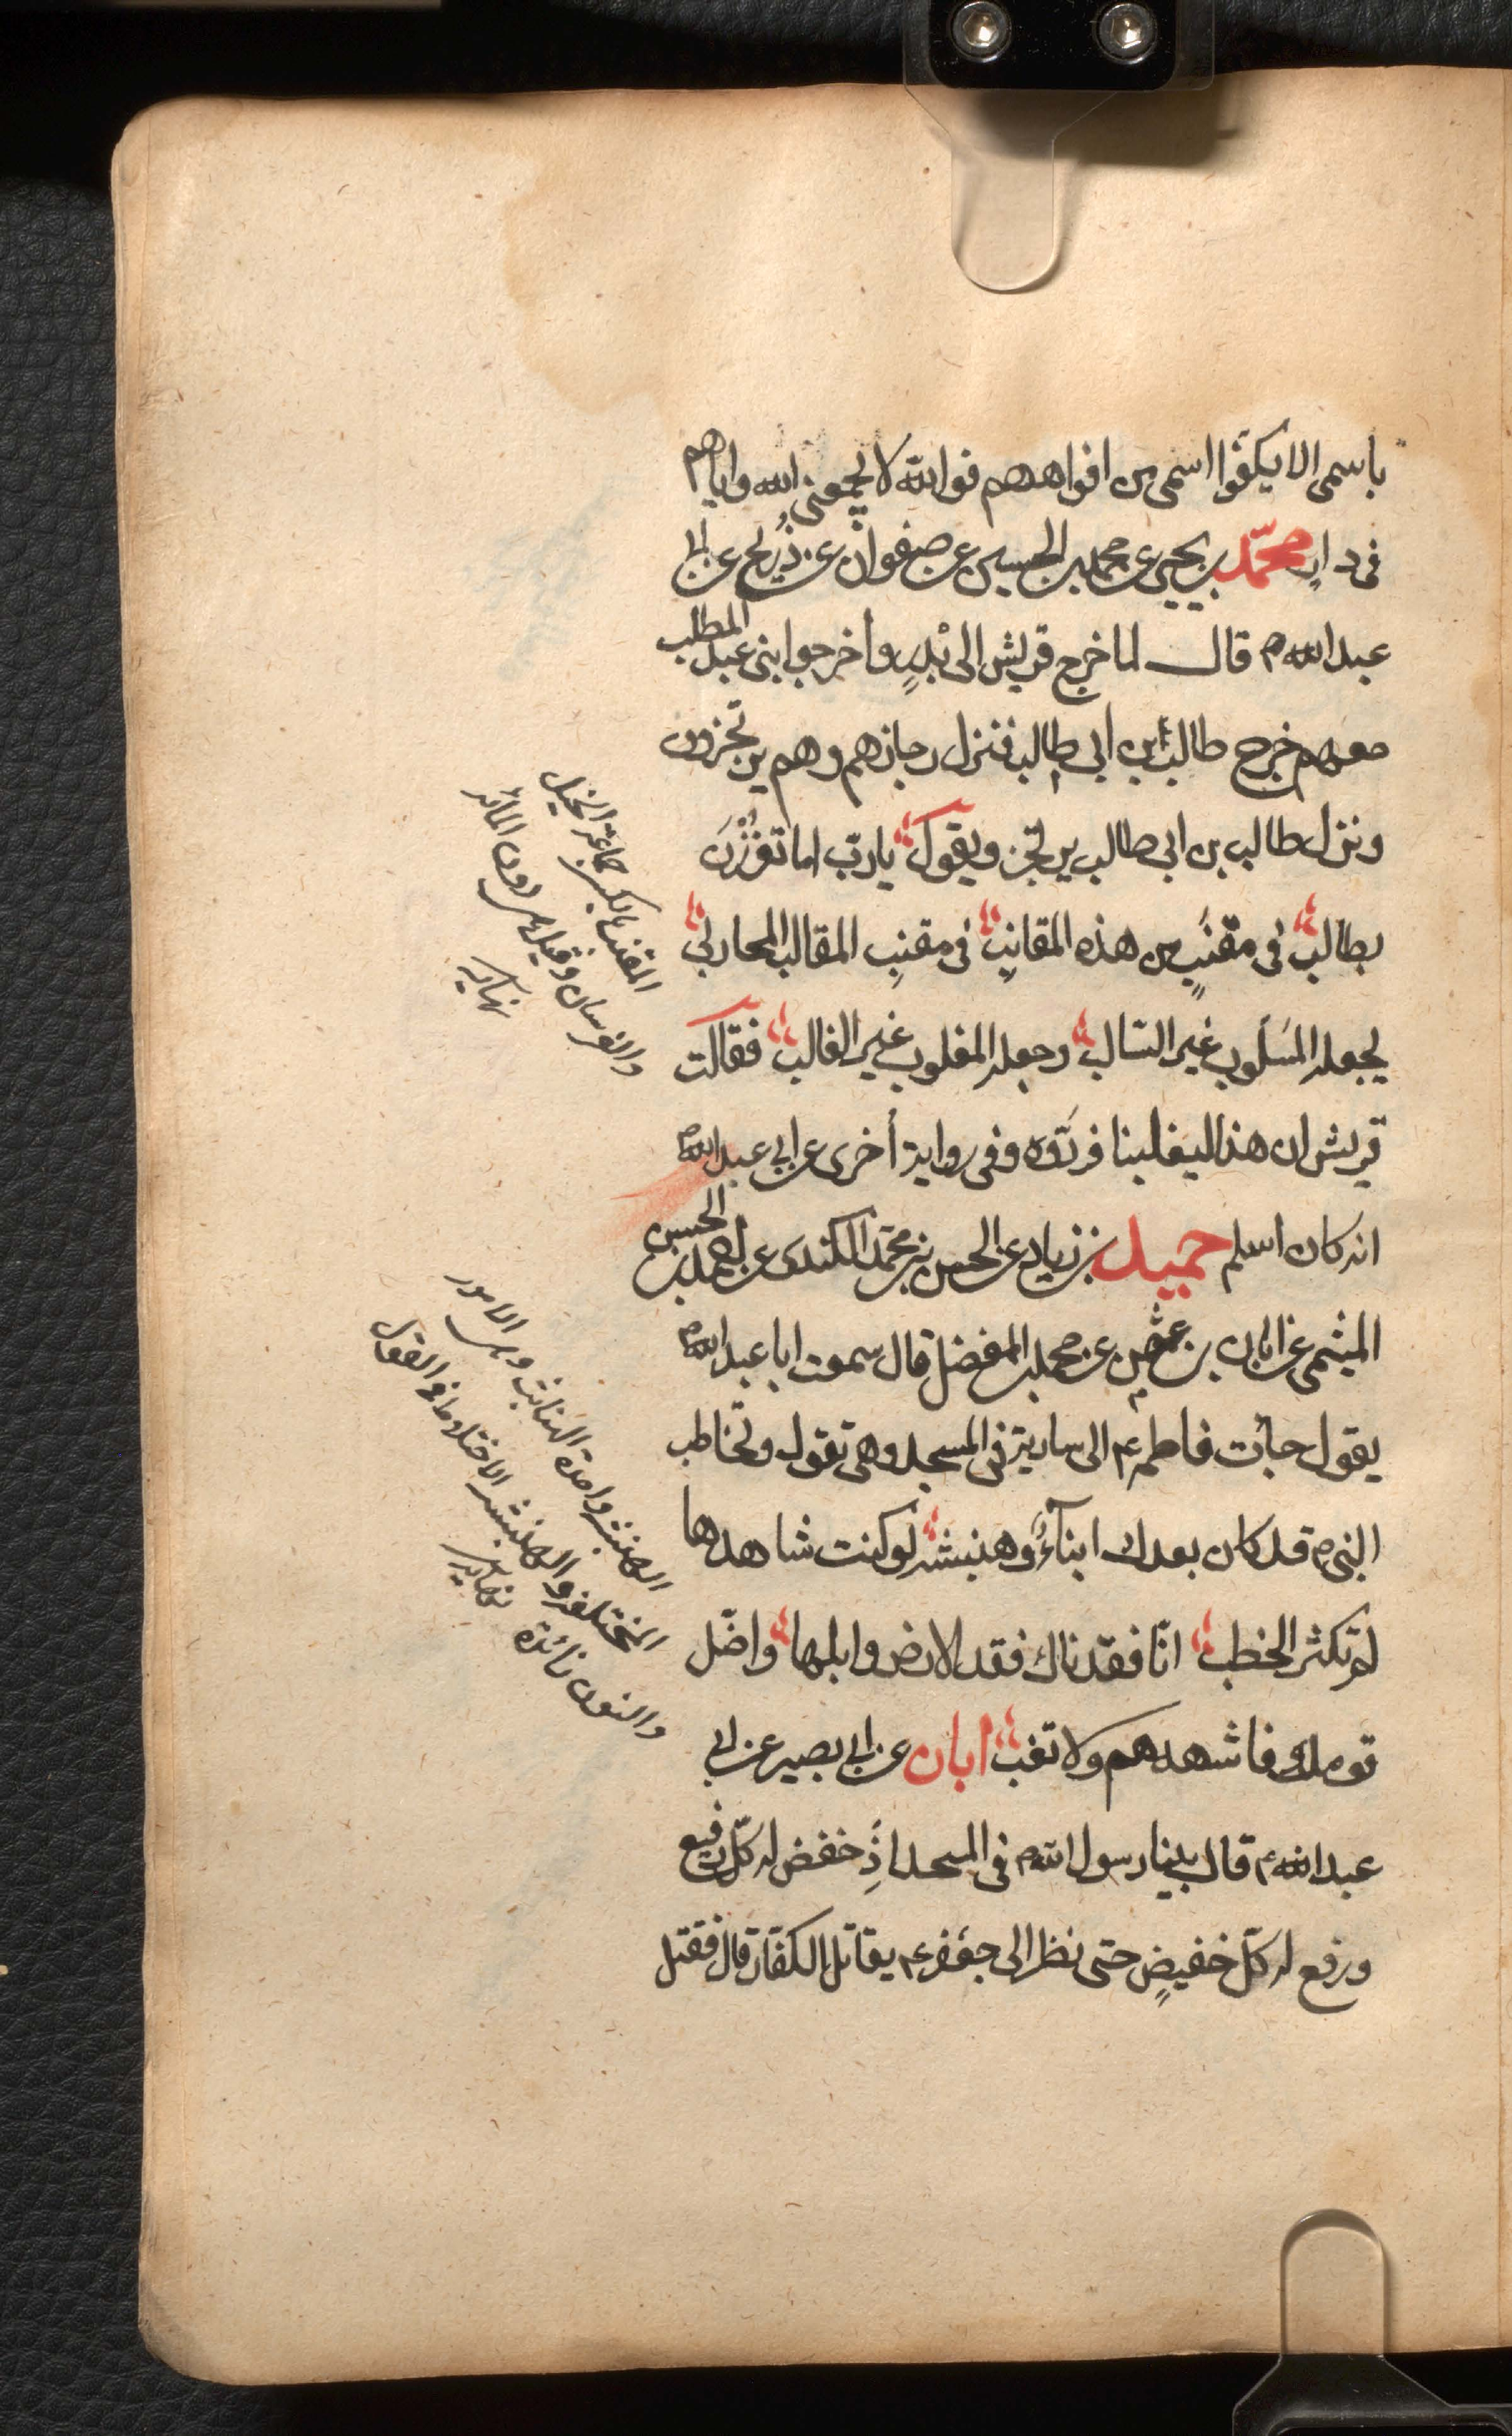 باسمى الا يكفوا اسمى من افواههم فوالله لا يجمعنى الله واياهم
فى دار محمد بن يحيى عن محمد بن الحسين عن صفوان عن ذريح عن ابى
عبد الله ع قال لما خرج قريش الى بدر واخرجوا بنى عبد المطلب
معهم خرج طالب بن ابى طالب فنزل رجازهم وهم يرتجزون
ونزل طالب بن ابى طالب يرتجز ويقول يا رب اما تغززن
بطالب فى مقنب من هذه المقانب فى مقنب المغالب المحارب
يجعله المسلوب غير السالب وجعله المغلوب غير الغالب فقالت
قريش ان هذا ليغلبنا فردوه وفى رواية أخرى عن ابى عبد الله ع
انه كان اسلم حميد بن زياد عن الحسن بن محمد الكندى عن احمد بن الحسن
الميثمى عن ابان بن عثمن عن محمد بن المفضل قال سمعت ابا عبد الله ع
يقول جائت فاطمة ع الى سارية فى المسجد وهى تقول وتخاطب
النبى ص قد كان بعدك ابناء وهنبثة لو كنت شاهدها
لم تكثر الخطب انا فقدناك فقد الارض وابلها واختل
قومك فاشهدهم ولا تغب ابان عن ابى بصير عن ابى
عبد الله ع قال بينا رسول الله ص فى المسجد اذ خفض له كل رفيع
ورفع له كل خفيض حتى نظر الى جعفر ع يقاتل الكفار قال فقتل
المقنب بالكسر جماعة الخيل
والفرسان وقيل هى دون المائة
نهاية
الهنبثة واحدة الهنابث وهى الامور
المختلفة والهنبثة الاختلاط فى القول
والنون زائدة نهاية